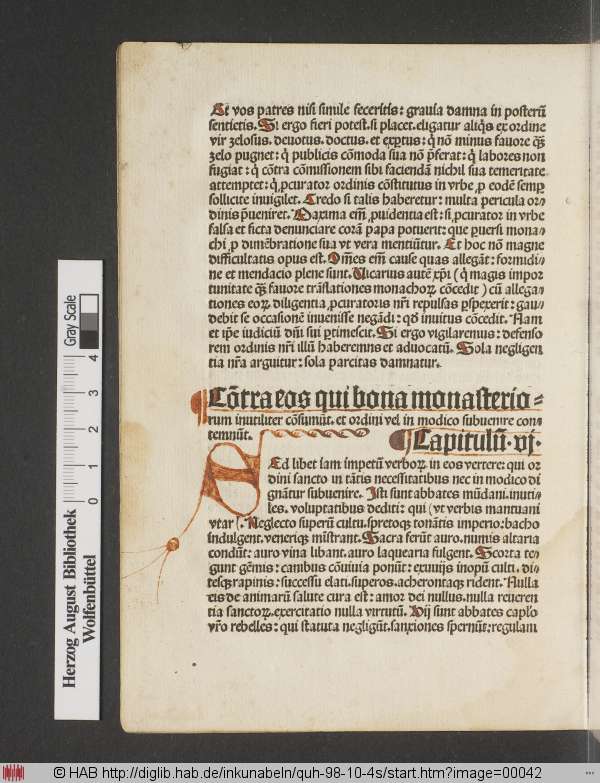 Et vos patres nisi simile feceritis: grauia damna in posterū
sentietis. Si ergo fieri potest. si placet. eligatur aliq̄s ex ordine
vir zelosus. deuotus. doctus. et exꝑtus: q̄ nō minus fauore q̄ꝫ
zelo pugnet: q̄ publicis cōmoda sua nō p̄ferat: q̄ labores non
fugiat: q̄ cōtra cōmissionem sibi faciendā nichil sua temeritate
attemptet: q̄ ꝓcurator ordinis cōstitutus in vrbe ꝓ eodē semꝑ
sollicite inuigilet. Credo si talis haberetur: multa pericula or⸗
dinis p̄ueniret. Maxima em̄ ꝓuidentia est: si ꝓcurator in vrbe
falsa et ficta denunciare corā papa potuerit: que ꝑuersi mona⸗
chi ꝓ dimēbratione sua vt vera mentiūtur. Et hoc nō magne
difficultatis opus est. Om̄es em̄ cause quas allegāt: formidi⸗
ne et mendacio plene sunt. Vicarius autē xp̄i (q̄ magis impor
tunitate q̄ꝫ fauore trāslationes monachoꝝ cōcedit) cū allega⸗
tiones eoꝝ diligentia ꝓcuratoris nr̄i repulsas ꝑspexerit: gau⸗
debit se occasionē inuenisse negādi: qd̄ inuitus cōcedit. Nam
et ip̄e iudiciū dn̄i sui ꝑtimescit. Si ergo vigilaremus: defenso
rem ordinis nr̄i illū haberemus et aduocatū. Sola negligen
tia nr̄a arguitur: sola parcitas damnatur.
Cōtra eos qui bona monasterio⸗
rum inutiliter cōsumūt. et ordini vel in modico subuenire con⸗
temnūt.
Capitulū. vj.
Sed libet iam impetū verboꝝ in eos vertere: qui or
dini sancto in tātis necessitatibus nec in modico di
gnātur subuenire. Isti sunt abbates mūdani. inuti⸗
les. voluptatibus dediti: qui (vt verbis mantuani
vtar). Neglecto superū cultu. spretoqꝫ tonātis imperio: bacho
indulgent. veneriqꝫ mīstrant. Sacra ferūt auro. numis altaria
condūt: auro vina libant. auro laquearia fulgent. Scorta te⸗
gunt gēmis: canibus cōuiuia ponūt: exuuijs inopū culti. di⸗
tesqꝫ rapinis: successu elati. superos. acherontaqꝫ rident. Nulla
eis de animarū salute cura est: amor dei nullus. nulla reueren
tia sanctoꝝ. exercitatio nulla virtutū. Hij sunt abbates caplo
vr̄o rebelles: qui statuta negligūt. sanxiones spernūt: regulam
Herzog August Bibliothek
Wolfenbüttel
Gray Scale
0 1 2 3 4
© HAB http://diglib.hab.de/inkunabeln/quh-98-10-4s/start.htm?image=00042